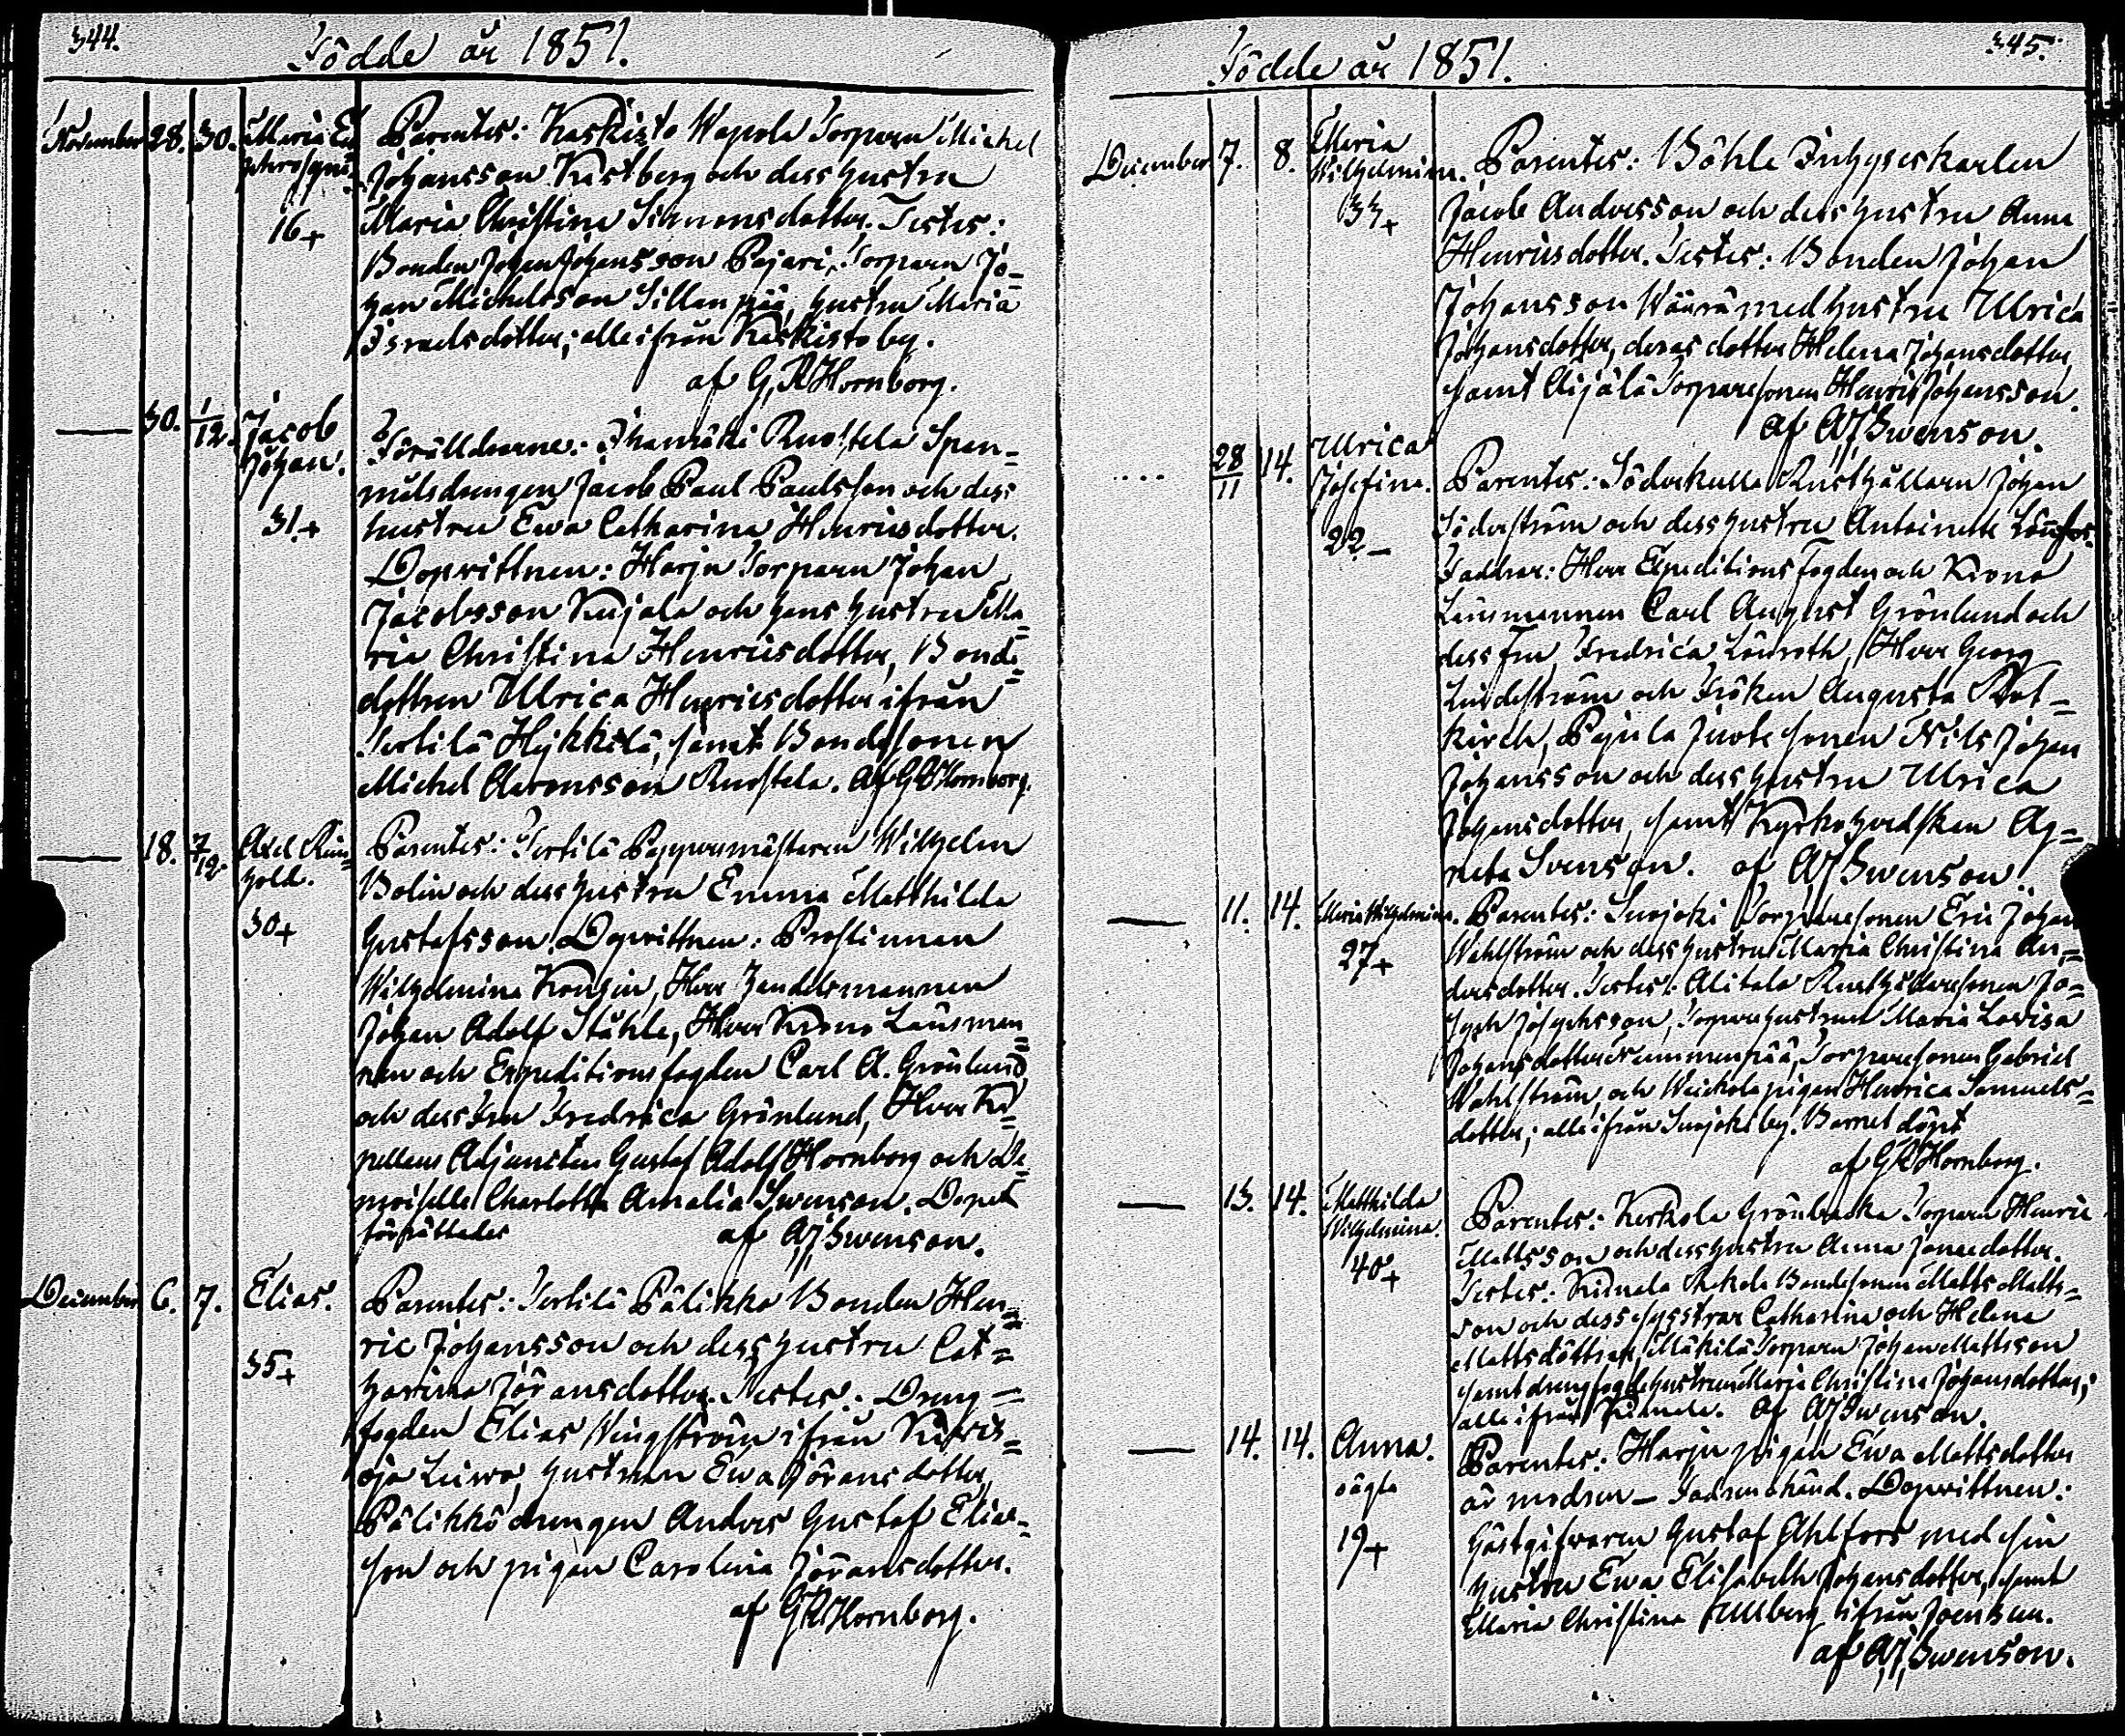 344.
Födde år 1851.
November 28. 30. Maria
16+
Parentes: Kaskisto Wapola Torparn Michel
Johansson Kastberg och dess hustru
Maria Christina Simonsdotter. Testes:
Bonden Johan Johansson Pajari, Torparn Jo-
han Michelsson Sillanpää, hustru Maria
Israelsdotter; alla ifrån Kaskisto by.
af G, A Hornborg.
— 30. 1/12. Jacob
Johan.
31+
Föräldrarne: Ruostela Span-
målsdrengen Jacob Paul Paulsson och dess
hustru Ewa Catharina Henricsdotter.
Dopvittnen: Harju Torparn Johan
Jacobsson Kujala och hans hustru Ma=
ria Christina Henricsdotter, Bonde
dottren Ulrica Henricsdotter ifrån
Tortilä Heikkilä, samt Bondesonen
Michel Aaronsson Ruostela. Af G A Hornborg.
— 18. 7/12. Axel Rein=
hold.
30+
Parentes: Tortilä Pappersmästaren Wilhelm
Bolin och dess hustru Emma Matthilda
Gustafsson. Dopvittnen: Prostinnan
Wilhelmina Herr Handelsmannen
Johan Adolf Ståhle, Herr Krono Länsman
nen och Expeditionsfogden Carl A. Grönlund
och dess Fru Fredrica Grönlund, Herr Ka=
pellans Adjuncten Gustaf Adolf Hornborg och De=
moiselle Charlotta Amalia Swenson. Dopet
förrättades af AJ Swenson.
December 6. 7. Elias.
35+
Parentes: Tortilä Pälikkö Bonden Hen=
ric Johansson och dess hustru Cat=
harina Jöransdotter. Testes: Dreng=
fogden Elias Wingström ifrån
hustrun Ewa Jöransdotter,
Pälikkö drengen Anders Gustaf Elias-
son och pigan Carolina Jöransdotter.
af G A Hornborg.
345.
Födde år 1851.
December 7. 8. Maria
Wilhelmina.
33+
Parentes: Böhle Inhyseskarlen
Jacob Andersson och dess hustru Anna
Henricsdotter. Testes: Bonden Johan
Johansson Wäärä med hustru Ulrica
Johansdotter, deras dotter Helena Johansdotter,
samt Äijälä Torparesonen Henric Johansson.
af AJ Swenson.
.... 28/11 14. Ulrica
Josefina.
22-
Parentes: Söderkulla Rusthållarn Johan
Söderström och dess hustru Antoinette
Faddrar: Herr Expeditions fogden och Krono
Länsmannen Carl August Grönlund och
dess Fru Fredrica Lönroth, Herr Georg
Lindeström och Fröken Augusta Rot=
kirch, Pajula sonen Nils Johan
Johansson och dess hustru Ulrica
Johansdotter, samt Ag=
neta Svenson. af AJ Swenson.
— 11. 14. Maria Wilhelmina.
27+
Parentes: Suojoki Torparesonen Eric Johan
Wahlström och dess hustru Maria Christina An=
dersdotter. Testes: Alitalo Rusthållaresonen Jo=
seph Josephsson, Torparehustrun Maria Lovisa
Johansdotter Nummenpää, Torparesonen Gabriel
Wahlström, och pigan Henrica Samuels=
dotter; alla ifrån Suojoki by. Barnet döpt
af GA Hornborg.
— 13. 14. Matthilda
Wilhelmina.
40+
Parentes: Kerkola Grönbacka Torparn Henric
Mattsson och dess hustru Anna Jonaedotter.
Testes: Bondesonen Matts Matts=
son och dess systrar Catharina och Helena
Mattsdöttrar, Mäkilä Torparn Johan Mattsson
samt drengfogdehustrun Maria Christina Johansdotter;
alla ifrån af AJ Swenson.
— 14. 14. Anna.
oägta
19+
Parentes: Harju pigan Ewa Mattsdotter
är modren - Fadren okänd. Dopvittnen:
Gästgifwaren Gustaf Ahlfors med sin
hustru Ewa Elisabeth Johansdotter, samt
Maria Christina Ullberg ifrån Joensuu.
af AJ Swenson.